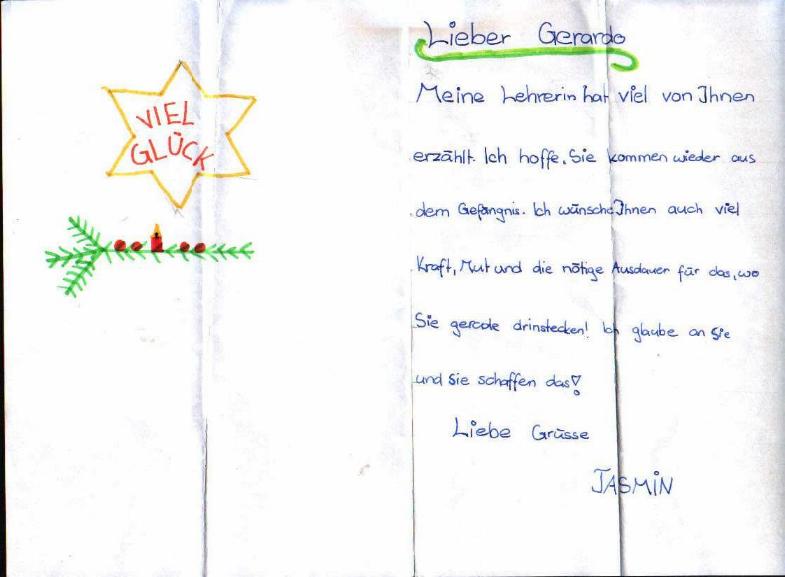 VIEL
GLÜCK
Lieber Gerardo
Meine Lehrerin hat viel von Ihnen
erzählt. Ich hoffe, Sie kommen wieder aus
dem Gefängnis. Ich wünsche Ihnen auch viel
Kraft, Mut und die nötige Ausdauer für das, wo
Sie gerade drinstecken! Ich glaube an Sie
und Sie schaffen das!
Liebe Grüsse
JASMIN